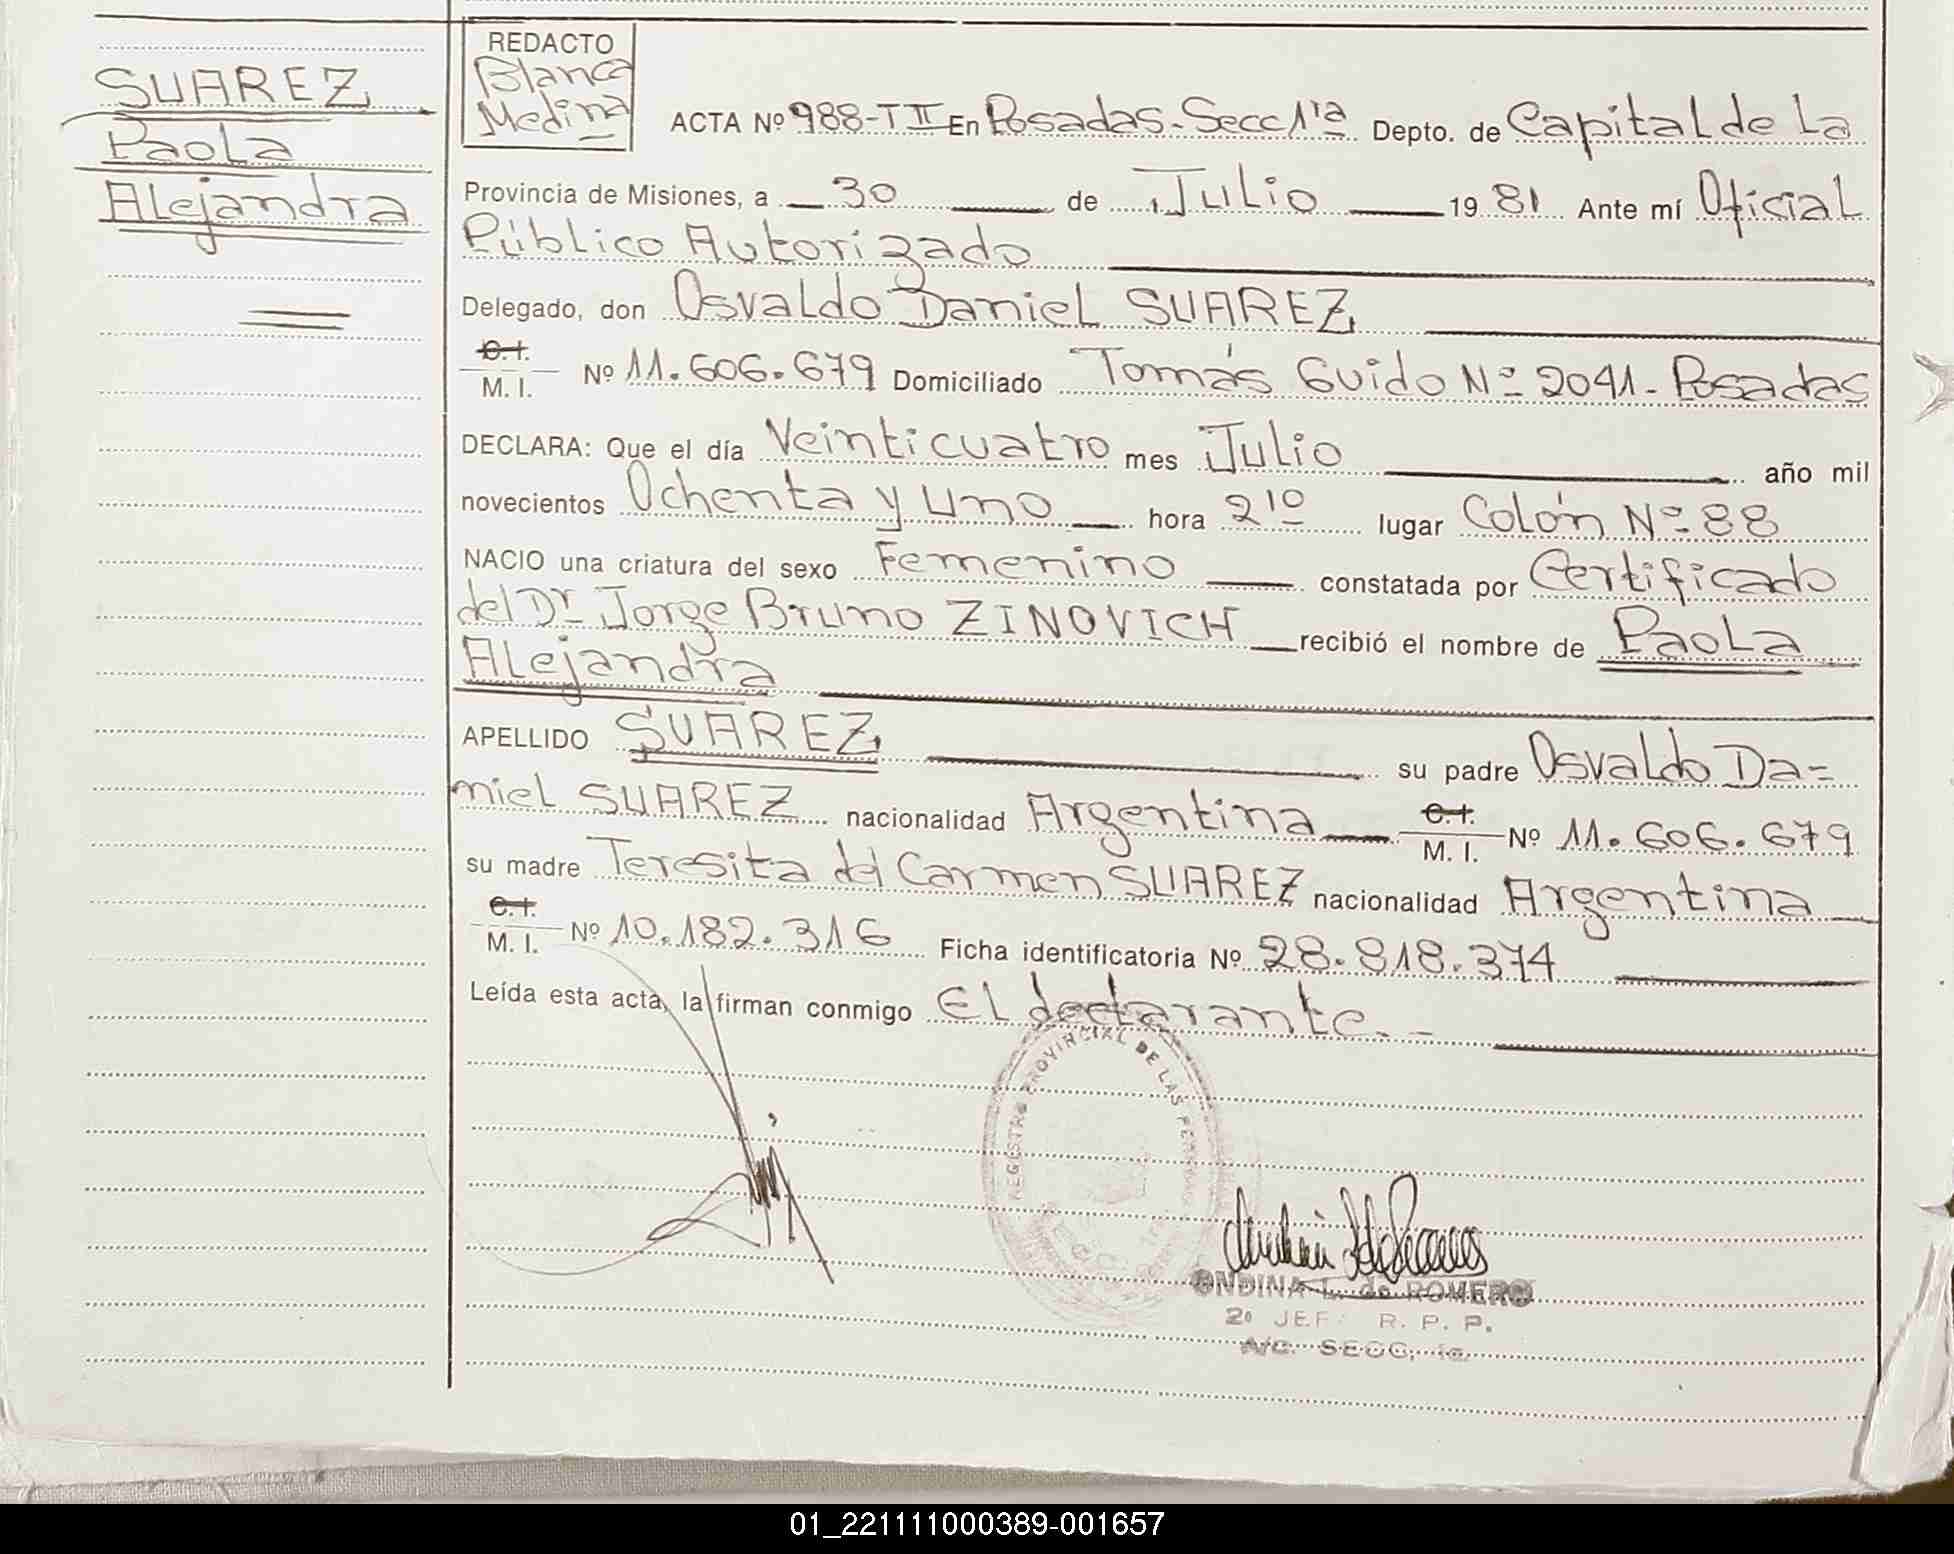 SUAREZ
Paola
Alejandra
REDACTO
Blanca
Medina
ACTA Nº 988-TII En Posadas-Secc 1ra Depto. de Capital de La
Provincia de Misiones, a 30 de Julio 19 81 Ante mí Oficial
Público Autorizado
Delegado, don Osvaldo Daniel SUAREZ
C.I.
M. I. Nº 11.606.679 Domiciliado Tomás Guido Nº 2041 - Posadas
DECLARA: Que el día Veinticuatro mes Julio año mil
novecientos Ochenta y uno hora 2 10 lugar Colón Nº 88
NACIO una criatura del sexo Femenino constatada por Certificado
del Dr Jorge Bruno ZINOVICH recibió el nombre de Paola
Alejandra
APELLIDO SUAREZ su padre Osvaldo Da=
niel SUAREZ nacionalidad Argentina C.I. M. I. Nº 11.606.679
su madre Teresita del Carmen SUAREZ nacionalidad Argentina
C.I.
M. I. Nº 10.182.316 Ficha identificatoria Nº 28.818.374
Leída esta acta, la firman conmigo El declarante.-
REGISTRO PROVINCIAL DE LAS PERSONAS
SECC. 1ra
ONDINA L. de ROMERO
2º JEF. R. P. P.
A/C. SECC, 1a.
01_221111000389-001657